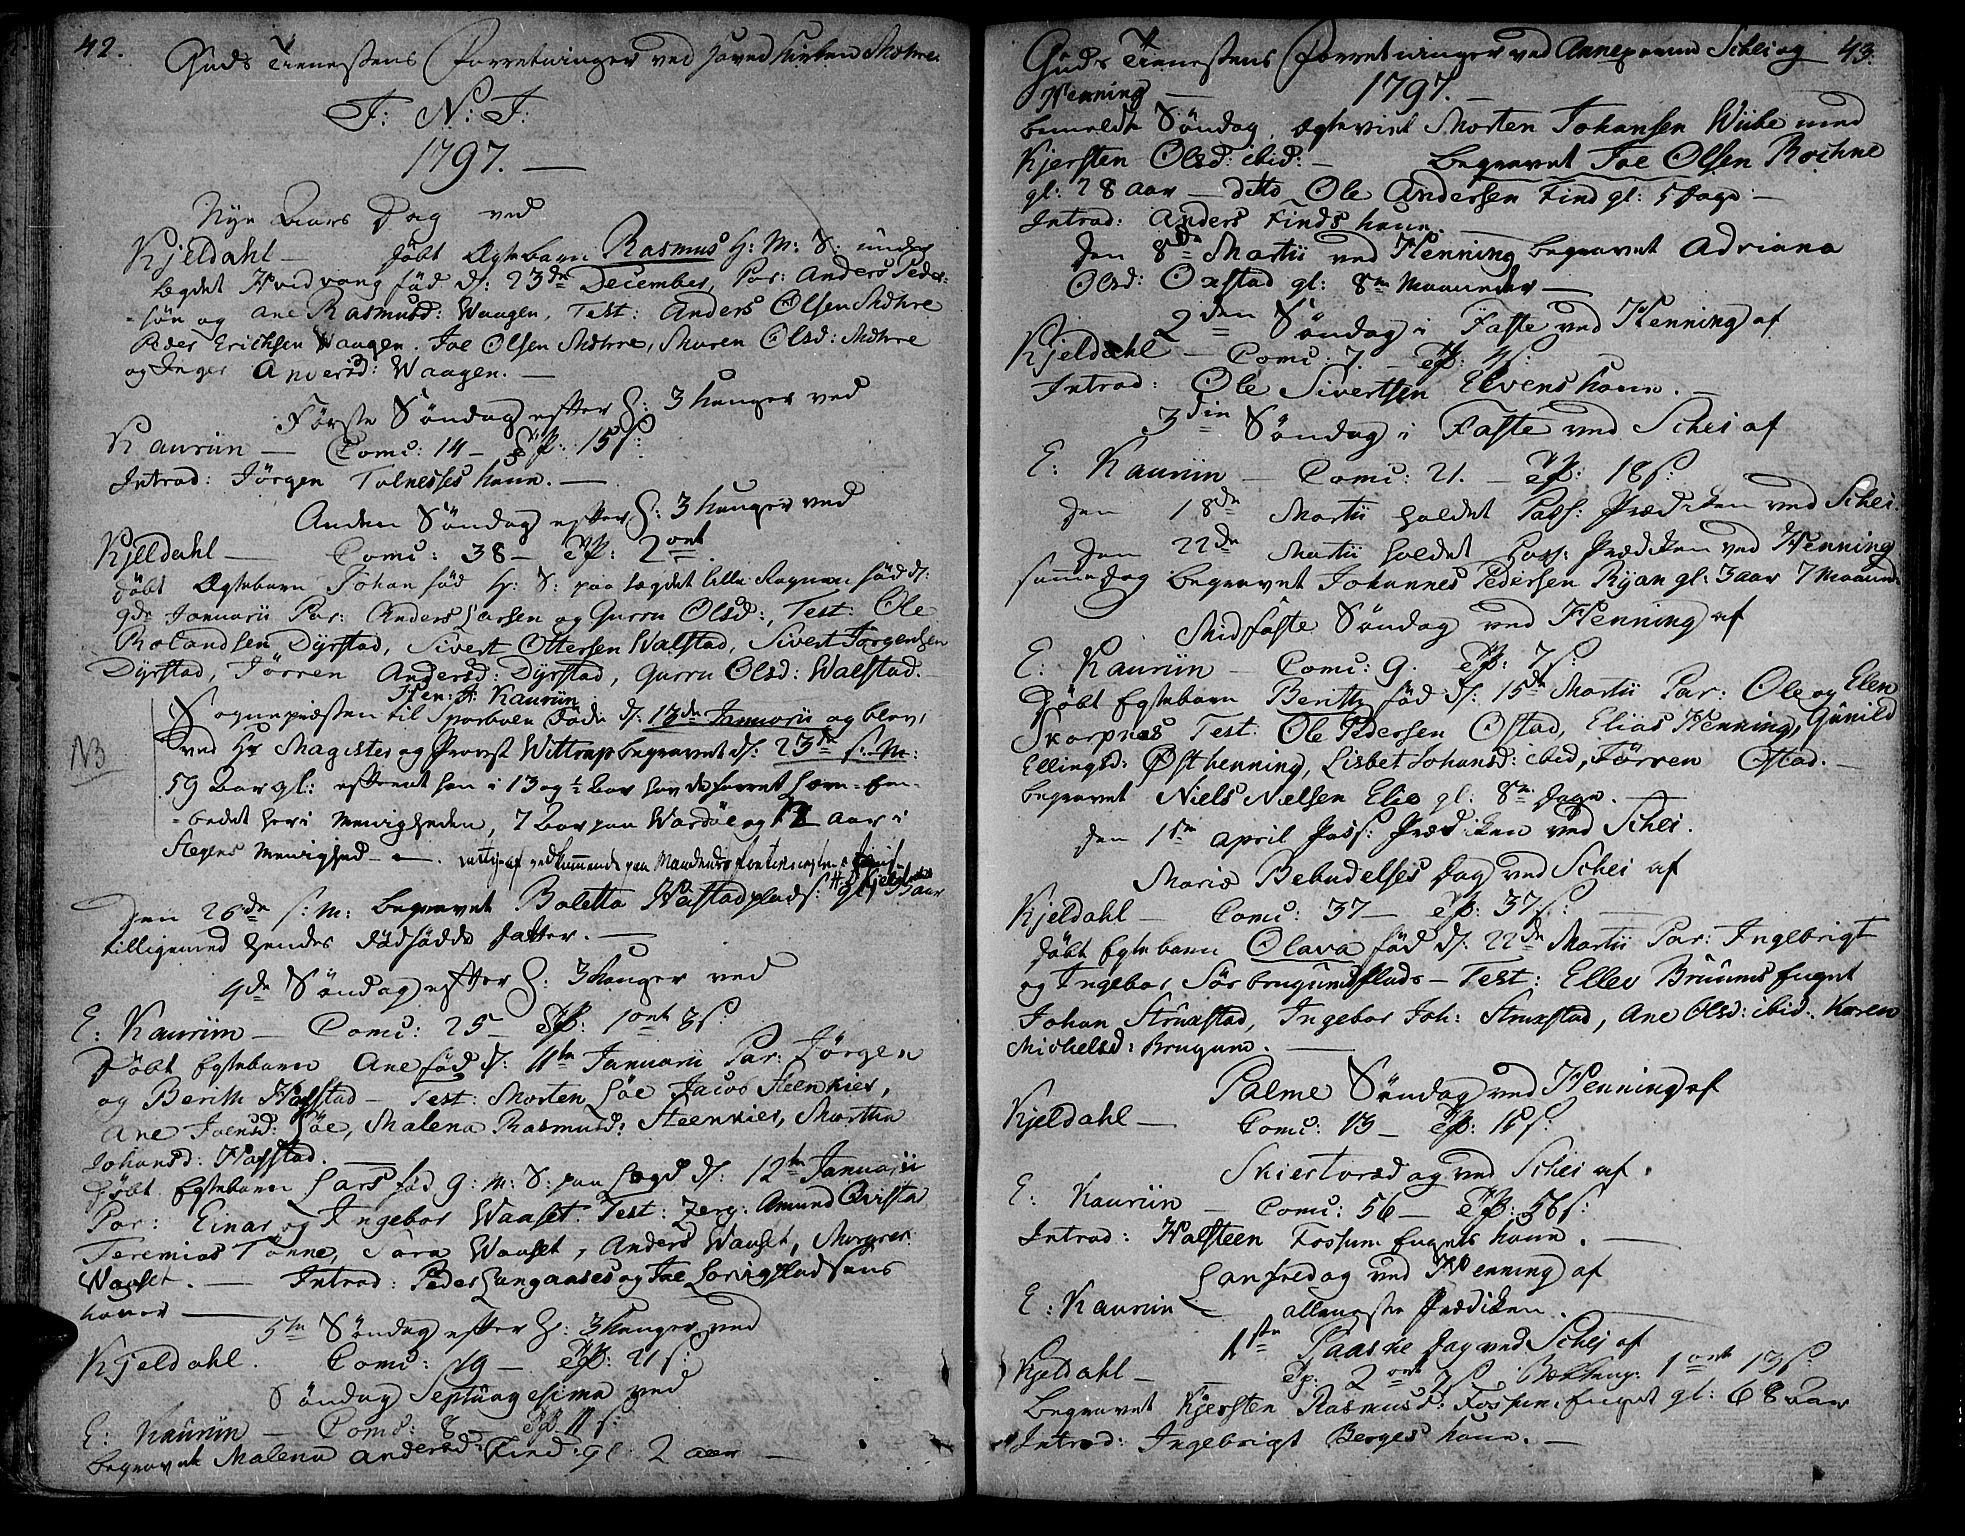 42.
Guds Tienestens Forretninger ved Hoved Kirken Mæhre
J: N: J:
1797. —
Nye Aars Dag ved
Kjeldahl — Døbt Ægtebarn Rasmus H: M: D: under
Lægdet Hvidvang fød d: 23de December, Par: Anders Peder-
-søn og ane Rasmusd: Waagen, Test: Anders Olsen Mæhre
Peder Erichsen Waagen. Joe Olsen Mæhre, Maren Olsd: Mæhre
og Inger Andersd: Waagen. —
Første Søndag efter H: 3 Konger ved
Kaurin — Comu: 14 — Ep: 15 s:
Introd: Jørgen Tolnesses kone. —
Anden Søndag efter H: 3 Konger ved
Kjeldahl — Comu: 38 — Ep: 2 ort
Døbt Ægtebarn Johan fød H: D: paa Lægdet lille fød d:
9de Januarii Par: Anders Larsen og Gurru Olsd:, Test: Ole
Rolandsen Dyrstad, Sivert Ottersen Walstad, Sivert Jørgensen
Dyrstad, Jørren Andersd: Dyrstad, Gurru Olsd: Walstad. —
Kaurin
NB
Sognepræsten til Sparboen døde d: 13de Januarii og blev
ved Hr Magister og Provst Wittrup begravet d: 23de s: M:
59 Aar gl: efterat han i 13 og ½ Aar havde forret
-bedet her i Menigheden, 7 Aar paa Wardøe og 12 aar i
Stegens Menighed —
Den 26de s: M: begravet Boletta Hafstadplads: gl: 3 aar
tilligemed hendes dødfødde datter. —
4de Søndag efter H: 3 Konger ved
E: Kaurin — Comu: 25 — Ep: 1 ort 3 s:
Døbt Egtebarn Ane fød d: 11te Januarii Par: Jørgen
og Berith Hafstad — Test: Morten Løe Jacob Steenkier,
Ane Joensd: Løe, Malena Rasmusd: Steenkier, Martha
Johansd: Hafstad.
Døbt Egtebarn Lars fød H: M: D: paa Lægd d: 12te Januarii
Par: Einar og Ingebor Waaset. Test: Serg: Amund Qvistad
Jeremias Tønne, Sara Waaset, Anders Waaset, Margret
Waaset. — Introd: Peder Langaases og Joe plads
koner —
5te Søndag efter H: 3 Konger ved
Kjeldahl. Comu: 19 — Ep: 21 s:
Søndag Septuagesima ved
E: Kaurin — Comu: 8 — Ep: 11 s:
Begravet Malena Andersd: Find: gl: 2 aar —
Guds Tienestens Forretninger ved Annexerne Schei og 43.
Henning — 1797. —
bemeldte Søndag, Ægteviet Morten Johansen Wiibe med
Kjersten Olsd: ibid: — begravet Joe Olsen Rochne
gl: 28 aar — ditto Ole Andersen Find gl: 5 dage —
Introd: Anders Finds kone. —
Den 8de Martii ved Henning begravet Adriana
Olsd: Oxstad gl: 8te Maaneder —
2den Søndag i Faste ved Henning af
Kjeldahl — Comu: 7. — Ep: 4 s:
Introd: Ole Sivertsen Elvens kone. —
3die Søndag i Faste ved Schei af
E: Kaurin — Comu: 21. — Ep: 18 s:
den 18de Martii holdet Pass: Prædiken ved Schei.
den 22de Martii holdet Pass: Prædiken ved Henning
samme dag begravet Johannes Pedersen Ryan gl: 3 aar 7 Maaned:
Midfaste Søndag ved Henning af
E: Kaurin — Comu: 9. Ep: 7 s:
Døbt Egtebarn Berith fød d: 15de Martii Par: Ole og Elen
Skarpnes Test: Ole Pedersen Ofstad, Elias Henning, Gunild
Ellingsd: Østhenning, Lisbet Johansd: ibid, Jørren Ofstad. —
begravet Niels Nielsen Elie gl: 8te dage.
den 1ste april Pass: Prædiken ved Schei.
Mariæ Bebudelses dag ved Schei af
Kjeldahl — Comu: 37 — Ep: 37 s: —
Døbt Egtebarn Olava fød d: 22de Martii Par: Ingebrigt
og Ingebor Sørbrugumsplads — Test: Ellev Bruumsgent
Johan Struxstad, Ingebor Joh: Struxstad, Ane Olsd: ibid: Karen
Michelsd: Brugum. —
Palme Søndag ved Henning af
Kjeldahl — Comu: 13 — Ep: 16 s:
Skiertorsdag ved Schei af.
E: Kaurin — Comu: 56 — Ep: 56 s:
Introd: Halsteen Fossumsgents kone. —
Langfredag ved Henning af
E: Kaurin — alleneste Prædiken. —
1ste Paaske dag ved Schei af
Kjeldahl — Ep: 2 ort 7 s: 1 ort 13 s:
begravet Kjersten Rasmusd: gl: 68 aar
Introd: Ingebrigt Berges kone. —